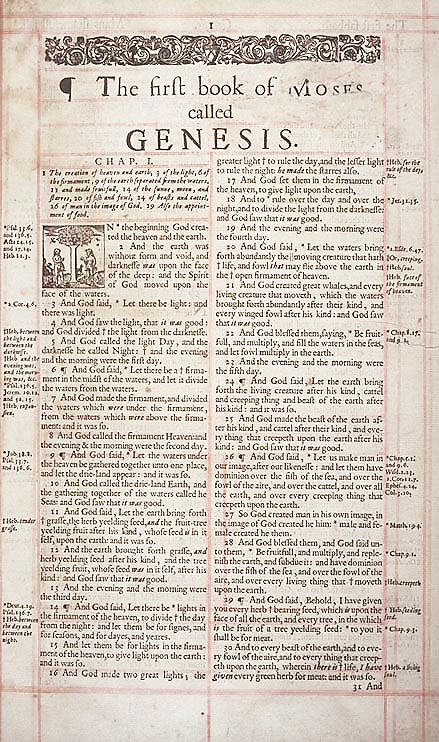 1
¶ The first book of MOSES
called
GENESIS.
CHAP. I.
1 The creation of heaven and earth, 3 of the light, 6 of
the firmament, 9 of the earth separated from the waters,
11 and made fruitfull, 14 of the sunne, moon, and
starres, 20 of fish and fowl, 24 of beasts and cattel,
26 of man in the image of God. 29 Also the appoint-
ment of food.
IN * the beginning God crea-
ted the heaven and the earth.
2 And the earth was
without form and void, and
darknesse was upon the face
of the deep: and the Spirit
of God moved upon the
face of the waters.
3 And God said, * Let there be light: and
there was light.
4 And God saw the light, that it was good:
and God divided † the light from the darknesse.
5 And God called the light Day, and the
darknesse he called Night: † and the evening
and the morning were the first day.
6 ¶ And God said, * Let there be a † firma-
ment in the midst of the waters, and let it divide
the waters from the waters.
7 And God made the firmament, and divided
the waters which were under the firmament,
from the waters which were above the firma-
ment: and it was so.
8 And God called the firmament Heaven: and
the evening & the morning were the second day.
9 ¶ And God said, * Let the waters under
the heaven be gathered together unto one place,
and let the drie-land appear: and it was so.
10 And God called the drie-land Earth, and
the gathering together of the waters called he
Seas: and God saw that it was good.
11 And God said, Let the earth bring forth
† grasse, the herb yeelding seed, and the fruit-tree
yeelding fruit after his kind, whose seed is in it
self, upon the earth: and it was so.
12 And the earth brought forth grasse, and
herb yeelding seed after his kind, and the tree
yeelding fruit, whose seed was in it self, after his
kind: and God saw that it was good.
13 And the evening and the morning were
the third day.
14 ¶ And God said, Let there be * lights in
the firmament of the heaven, to divide † the day
from the night: and let them be for signes, and
for seasons, and for dayes, and yeares.
15 And let them be for lights in the firma-
ment of the heaven, to give light upon the earth:
and it was so.
16 And God made two great lights; the
greater light † to rule the day, and the lesser light
to rule the night: he made the starres also.
17 And God set them in the firmament of
the heaven, to give light upon the earth,
18 And to * rule over the day and over the
night, and to divide the light from the darknesse:
and God saw that it was good.
19 And the evening and the morning were
the fourth day.
20 And God said, * Let the waters bring
forth abundantly the || moving creature that hath
† life, and fowl that may flie above the earth in
the † open firmament of heaven.
21 And God created great whales, and every
living creature that moveth, which the waters
brought forth abundantly after their kind, and
every winged fowl after his kind: and God saw
that it was good.
22 And God blessed them, saying, * Be fruit-
full, and multiply, and fill the waters in the seas,
and let fowl multiply in the earth.
23 And the evening and the morning were
the fifth day.
24 ¶ And God said, Let the earth bring
forth the living creature after his kind, cattel
and creeping thing and beast of the earth after
his kind: and it was so.
25 And God made the beast of the earth af-
ter his kind, and cattel after their kind, and eve-
ry thing that creepeth upon the earth after his
kind: and God saw that it was good.
26 ¶ And God said, * Let us make man in
our image, after our likenesse: and let them have
dominion over the fish of the sea, and over the
fowl of the aire, and over the cattel, and over all
the earth, and over every creeping thing that
creepeth upon the earth.
27 So God created man in his own image, in
the image of God created he him: * male and fe-
male created he them.
28 And God blessed them, and God said un-
to them, * Be fruitfull, and multiply, and reple-
nish the earth, and subdue it: and have dominion
over the fish of the sea, and over the fowl of the
aire, and over every living thing that † moveth
upon the earth.
29 ¶ And God said, Behold, I have given
you every herb † bearing seed, which is upon the
face of all the earth, and every tree, in the which
is the fruit of a tree yeelding seed: * to you it
shall be for meat.
30 And to every beast of the earth, and to eve-
ry fowl of the aire, and to every thing that creep-
eth upon the earth, wherein there is † life, I have
given every green herb for meat: and it was so.
31 And
* Psal. 33.6.
and 136.5.
Acts 14.15.
and 17.24.
Heb. 11.3.
* 2. Cor. 4.6.
† Heb. between
the light and
between the
darknesse.
† Heb. and the
evening was,
and the mor-
ning was, &c.
* Psal. 136.5.
Jerem. 10.12.
and 51.15.
† Heb. expan-
sion.
* Job 38.8.
Psal. 33.7.
and 136.6.
† Heb. tender
grasse.
* Deut. 4.19.
Psal. 136.7.
† Heb. between
the day and
between the
night.
† Heb. for the
rule of the day,
&c.
* Jer. 31.35.
* 2. Esdr. 6.47.
|| Or, creeping.
† Heb. soul.
† Heb. face of
the firmament
of heaven.
* Chap. 8.17.
and 9.1.
* Chap. 5.1.
and 9.6.
Wisd. 2.23.
1. Cor. 11.7.
Ephes. 4.24.
Col. 3.10.
* Matth. 19.4.
* Chap. 9.1.
† Heb. creepeth
† Heb. seeding
seed.
* Chap. 9.3.
† Heb. a living
soul.